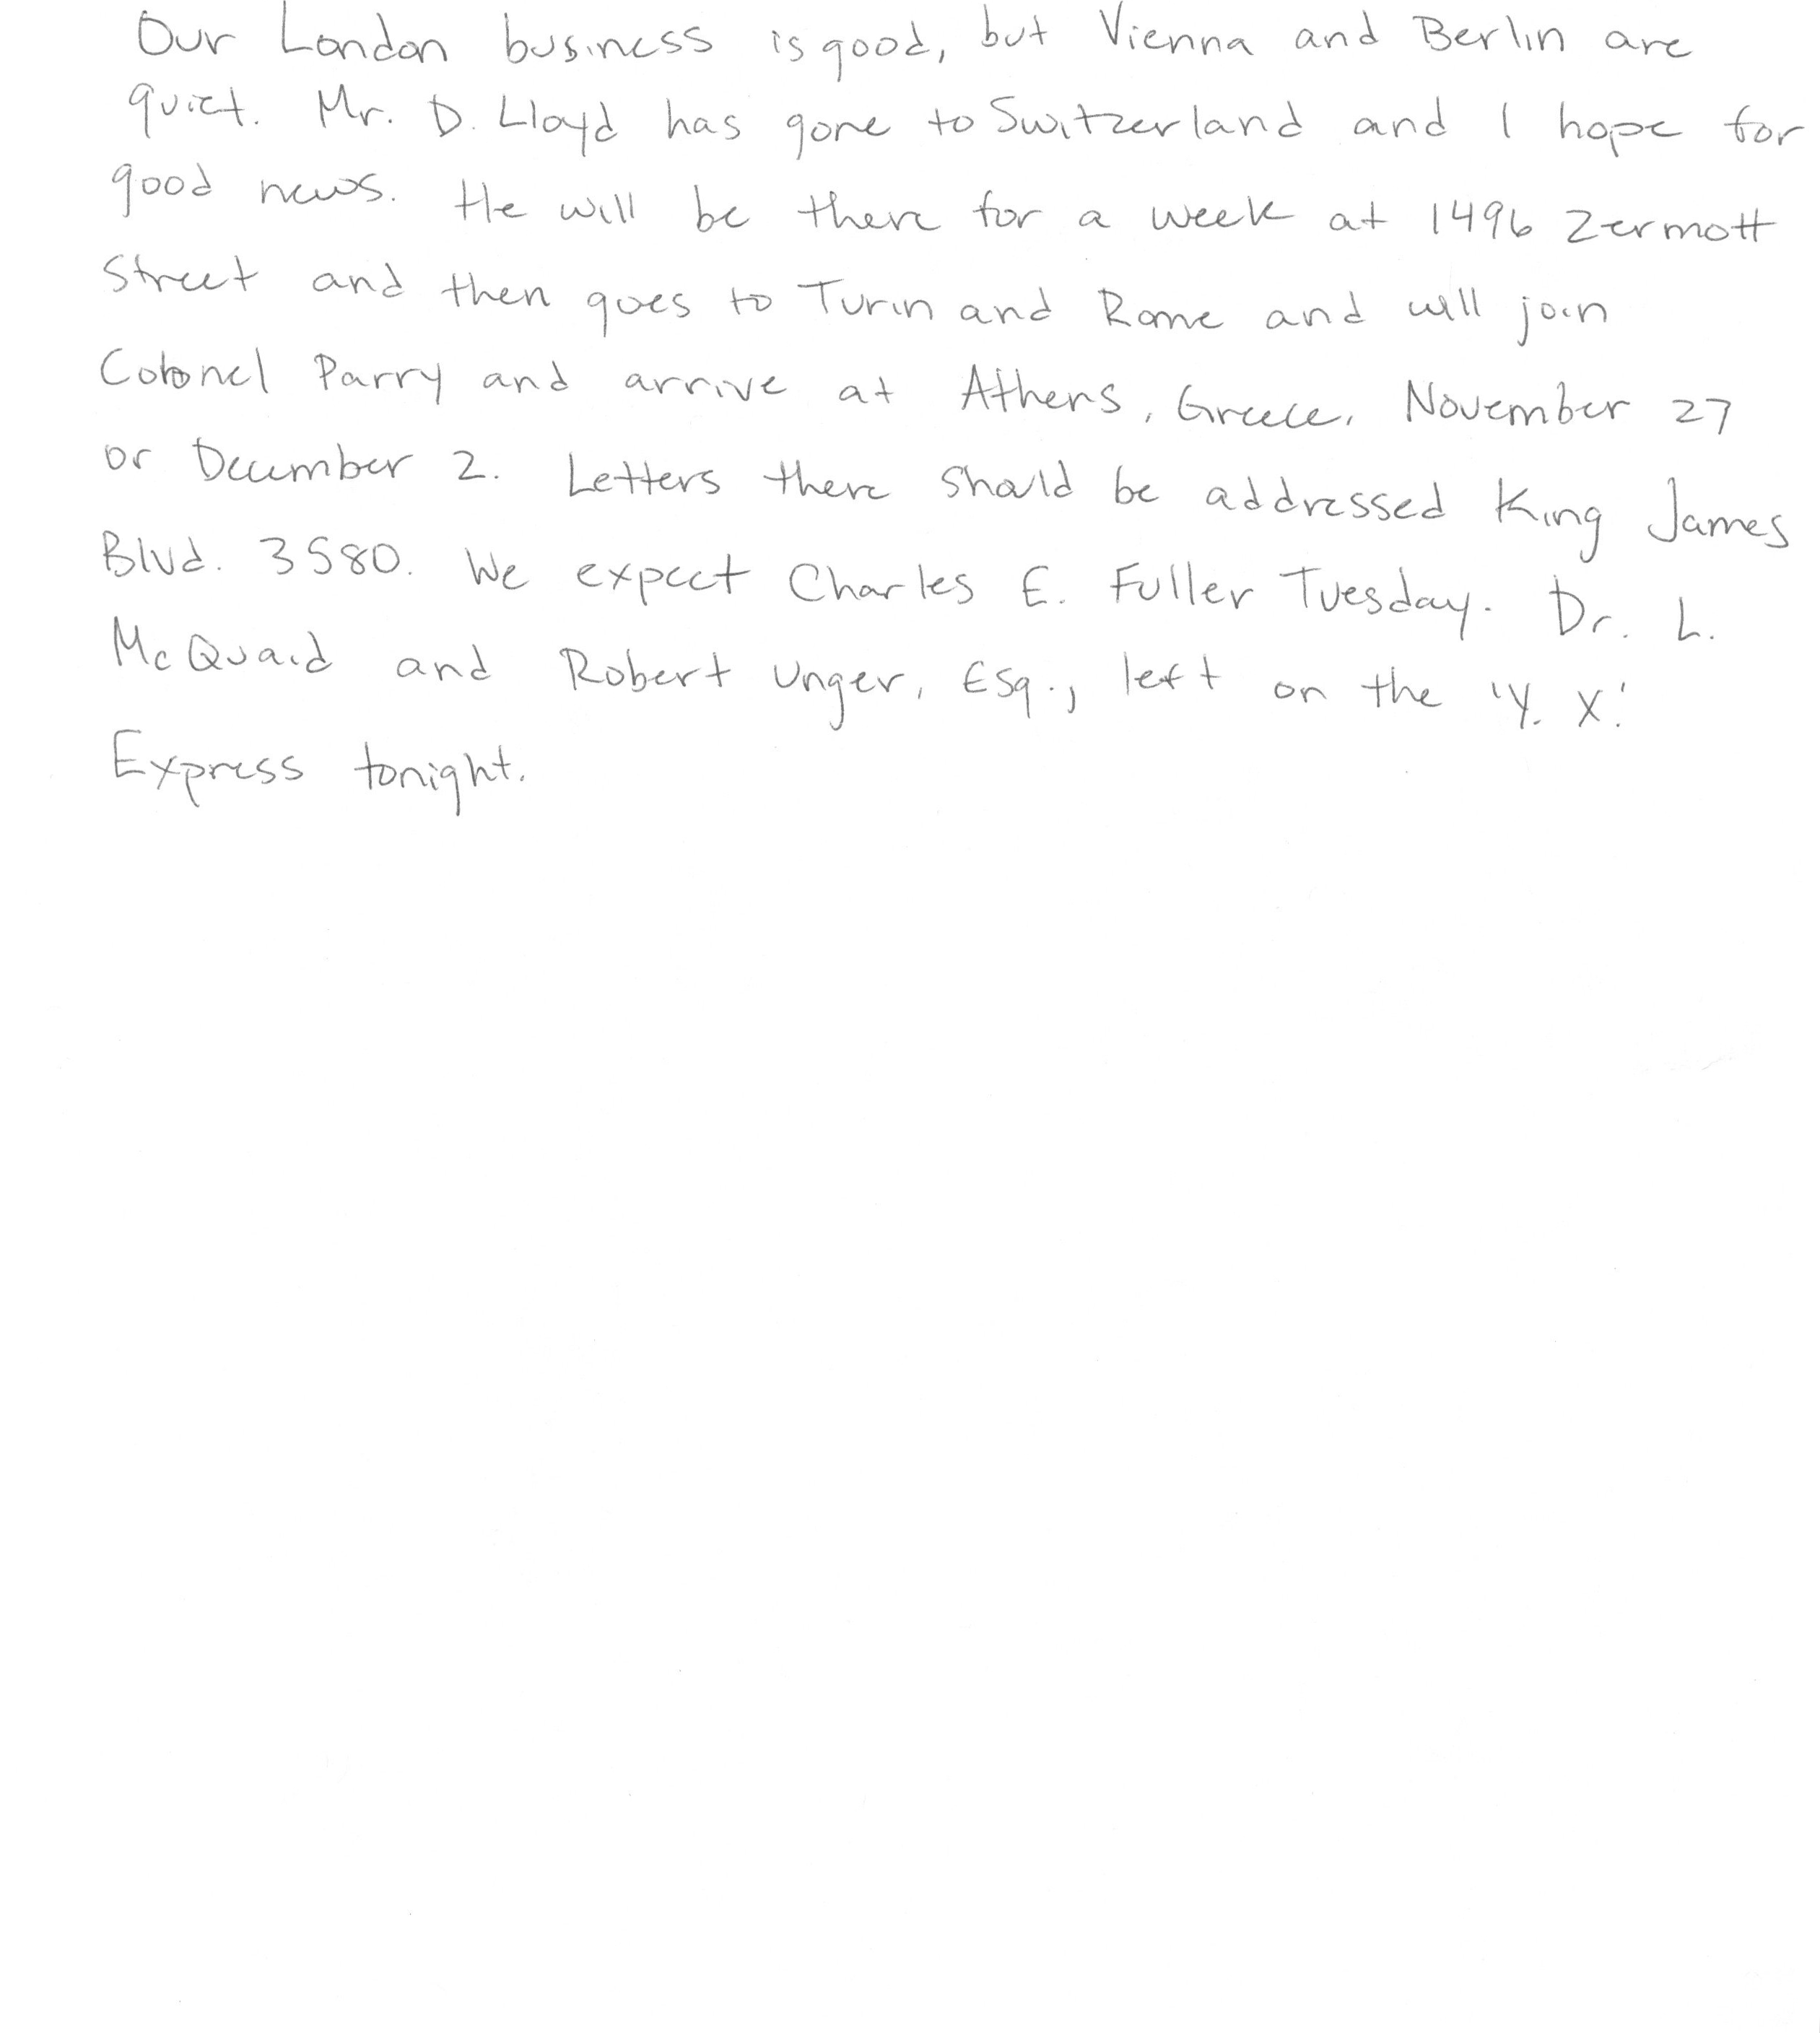 Our London business is good, but Vienna and Berlin are
quiet. Mr. D. Lloyd has gone to Switzerland and I hope for
good news. He will be there for a week at 1496 Zermott
Street and then goes to Turin and Rome and will join
Colonel Parry and arrive at Athens, Greece, November 27
or December 2. Letters there should be addressed King James
Blvd. 3580. We expect Charles E. Fuller Tuesday. Dr. L.
McQuaid and Robert Unger, Esq., left on the 'Y. X.'
Express tonight.